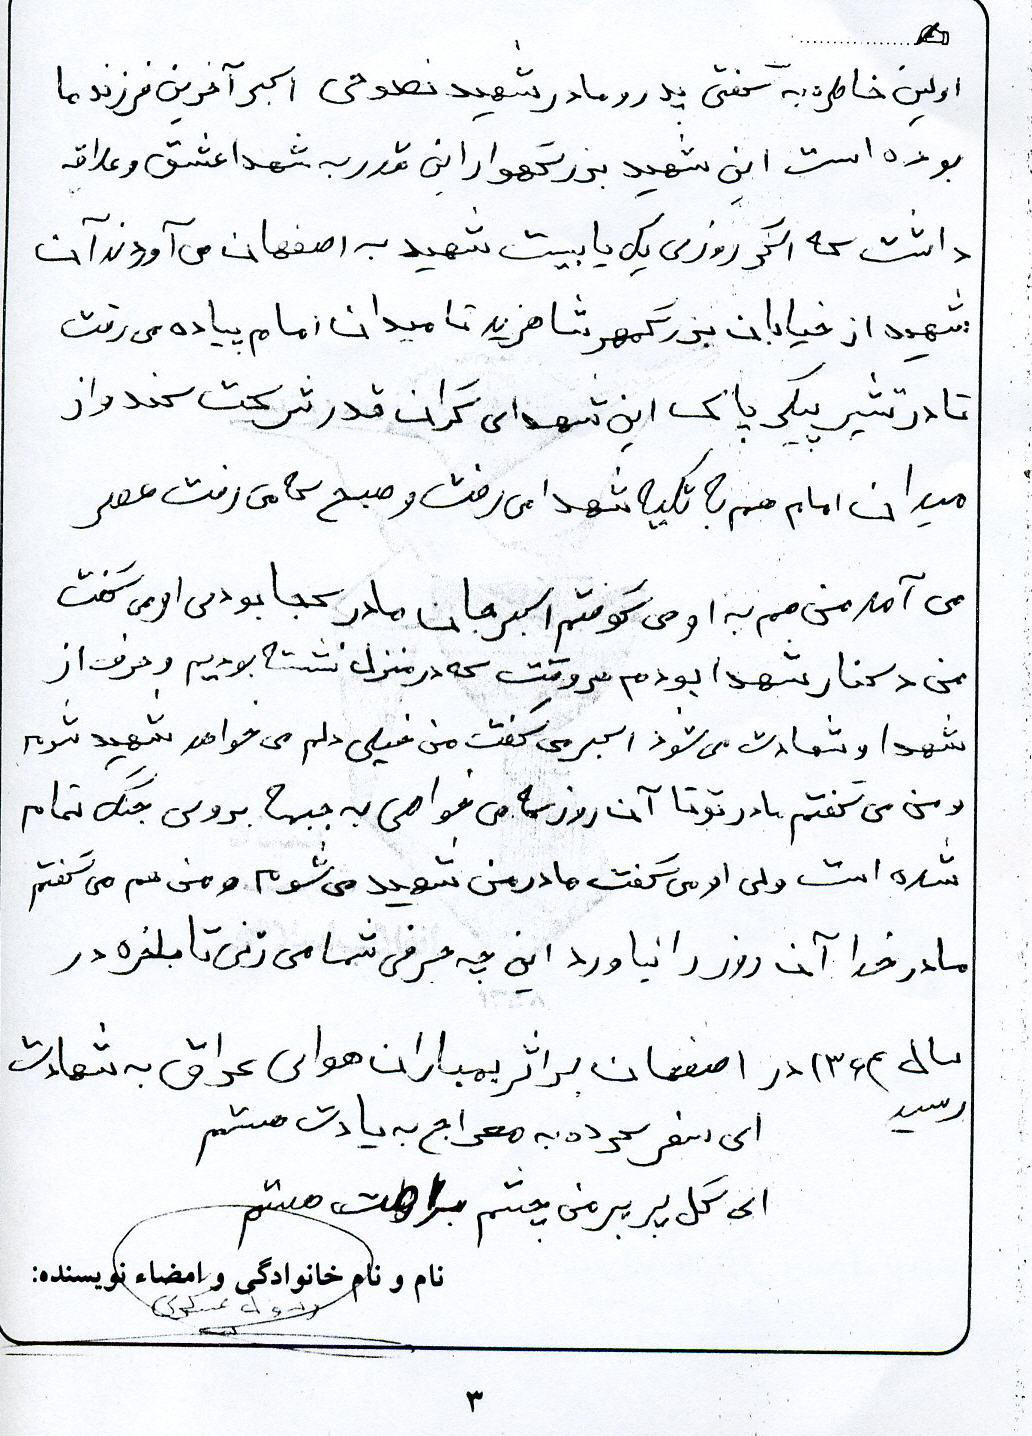 اولین خاطره به گفتی پدر و مادر شهید نصوحی اکبر آخرین فرزند ما
بوده است این شهید بزرگهوار این قدر به شهدا عشق و علاقه
داشت که اگر روزی یک یا بیست شهید به اصفهان می آوردند آن
شهید از خیابان بزرگمهر تا میدان امام پیاده می رفت
تا در تشیر پیکر پاک این شهدای گران قدر شرکت کند و از
میدان امام هم تا تکیه شهدا می رفت و صبح که می رفت عصر
می آمد من هم به او می گوفتم اکبر جان مادر کجا بودی او می گفت
من د کنار شهدا بودم هر وقت که در منزل نشته بودیم و حرف از
شهدا و شهادت می شود اکبر می گفت من خیلی دلم می خواهد شهید شوم
و من می گفتم مادر تو تا آن روز که می خواهی به جبهه بروی جنگ تمام
شده است ولی او می گفت مادر من شهید می شوم و من هم می گفتم
مادر خدا آن روز را نیاورد این چه حرفی شما می زنی تا بلخره در
سال ۱۳۶۴ در اصفهان بر اثر بمباران هوایی عراق به شهادت
رسید
ای سفر کرده به معراج به یادت هستم
ای گل پر پر من چشم براهت هستم
نام و نام خانوادگی و امضاء نویسنده:
۳